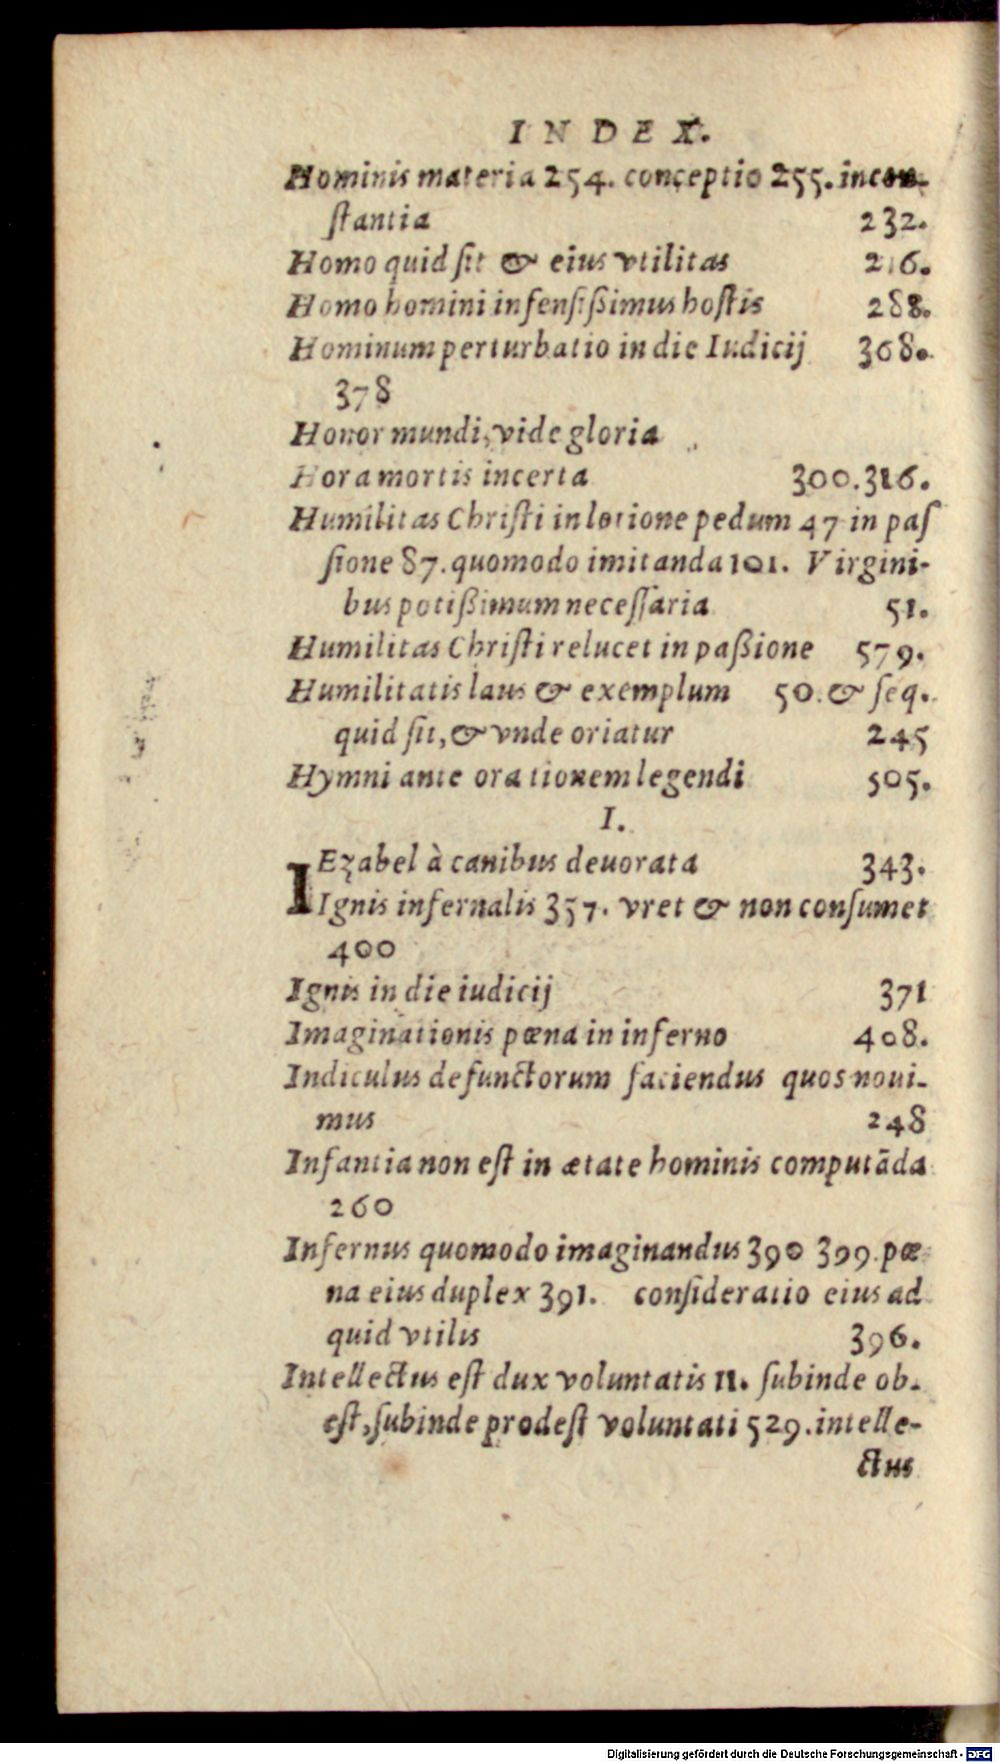 INDEX.
Hominis materia 254. conceptio 255. incon-
ſtantia 232.
Homo quid ſit & eius vtilitas 216.
Homo homini infenſiſſimus hoſtis 288.
Hominum perturbatio in die Iudicij 368.
378
Honor mundi, vide gloria
Hora mortis incerta 300. 316.
Humilitas Chriſti in lotione pedum 47 in paſ
ſione 87. quomodo imitanda 101. Virgini-
bus potißimum neceſſaria 51.
Humilitas Chriſti relucet in paßione 579.
Humilitatis laus & exemplum 50. & ſeq.
quid ſit, & vnde oriatur 245
Hymni ante orationem legendi 505.
I.
IEzabel à canibus deuorata 343.
Ignis infernalis 357. vret & non conſumet
400
Ignis in die iudicij 371
Imaginationis pœna in inferno 408.
Indiculus defunctorum faciendus quos noui-
mus 248
Infantia non eſt in ætate hominis computāda
260
Infernus quomodo imaginandus 390 399. pœ-
na eius duplex 391. conſideratio eius ad
quid vtilis 396.
Intellectus eſt dux voluntatis 11. ſubinde ob-
eſt, ſubinde prodeſt voluntati 529. intelle-
ctus
Digitalisierung gefördert durch die Deutsche Forschungsgemeinschaft - DFG